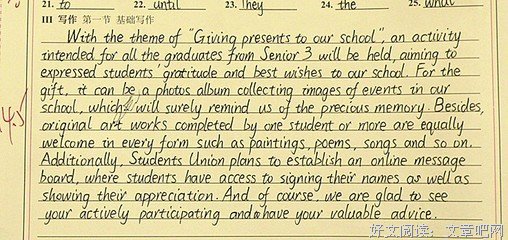 21. to 22. until 23. They 24. the 25. what
III 写作 第一节 基础写作
With the theme of "Giving presents to our school", an activity
intended for all the graduates from Senior 3 will be held, aiming to
expressed students' gratitude and best wishes to our school. For the
gift, it can be a photos album collecting images of events in our
school, which will surely remind us of the precious memory. Besides,
original art works completed by one student or more are equally
welcome in every form such as paintings, poems, songs and so on.
Additionally, Students Union plans to establish an online message
board, where students have access to signing their names as well as
showing their appreciation. And of course, we are glad to see
your actively participating and have your valuable advice.
好文阅读,文章吧网